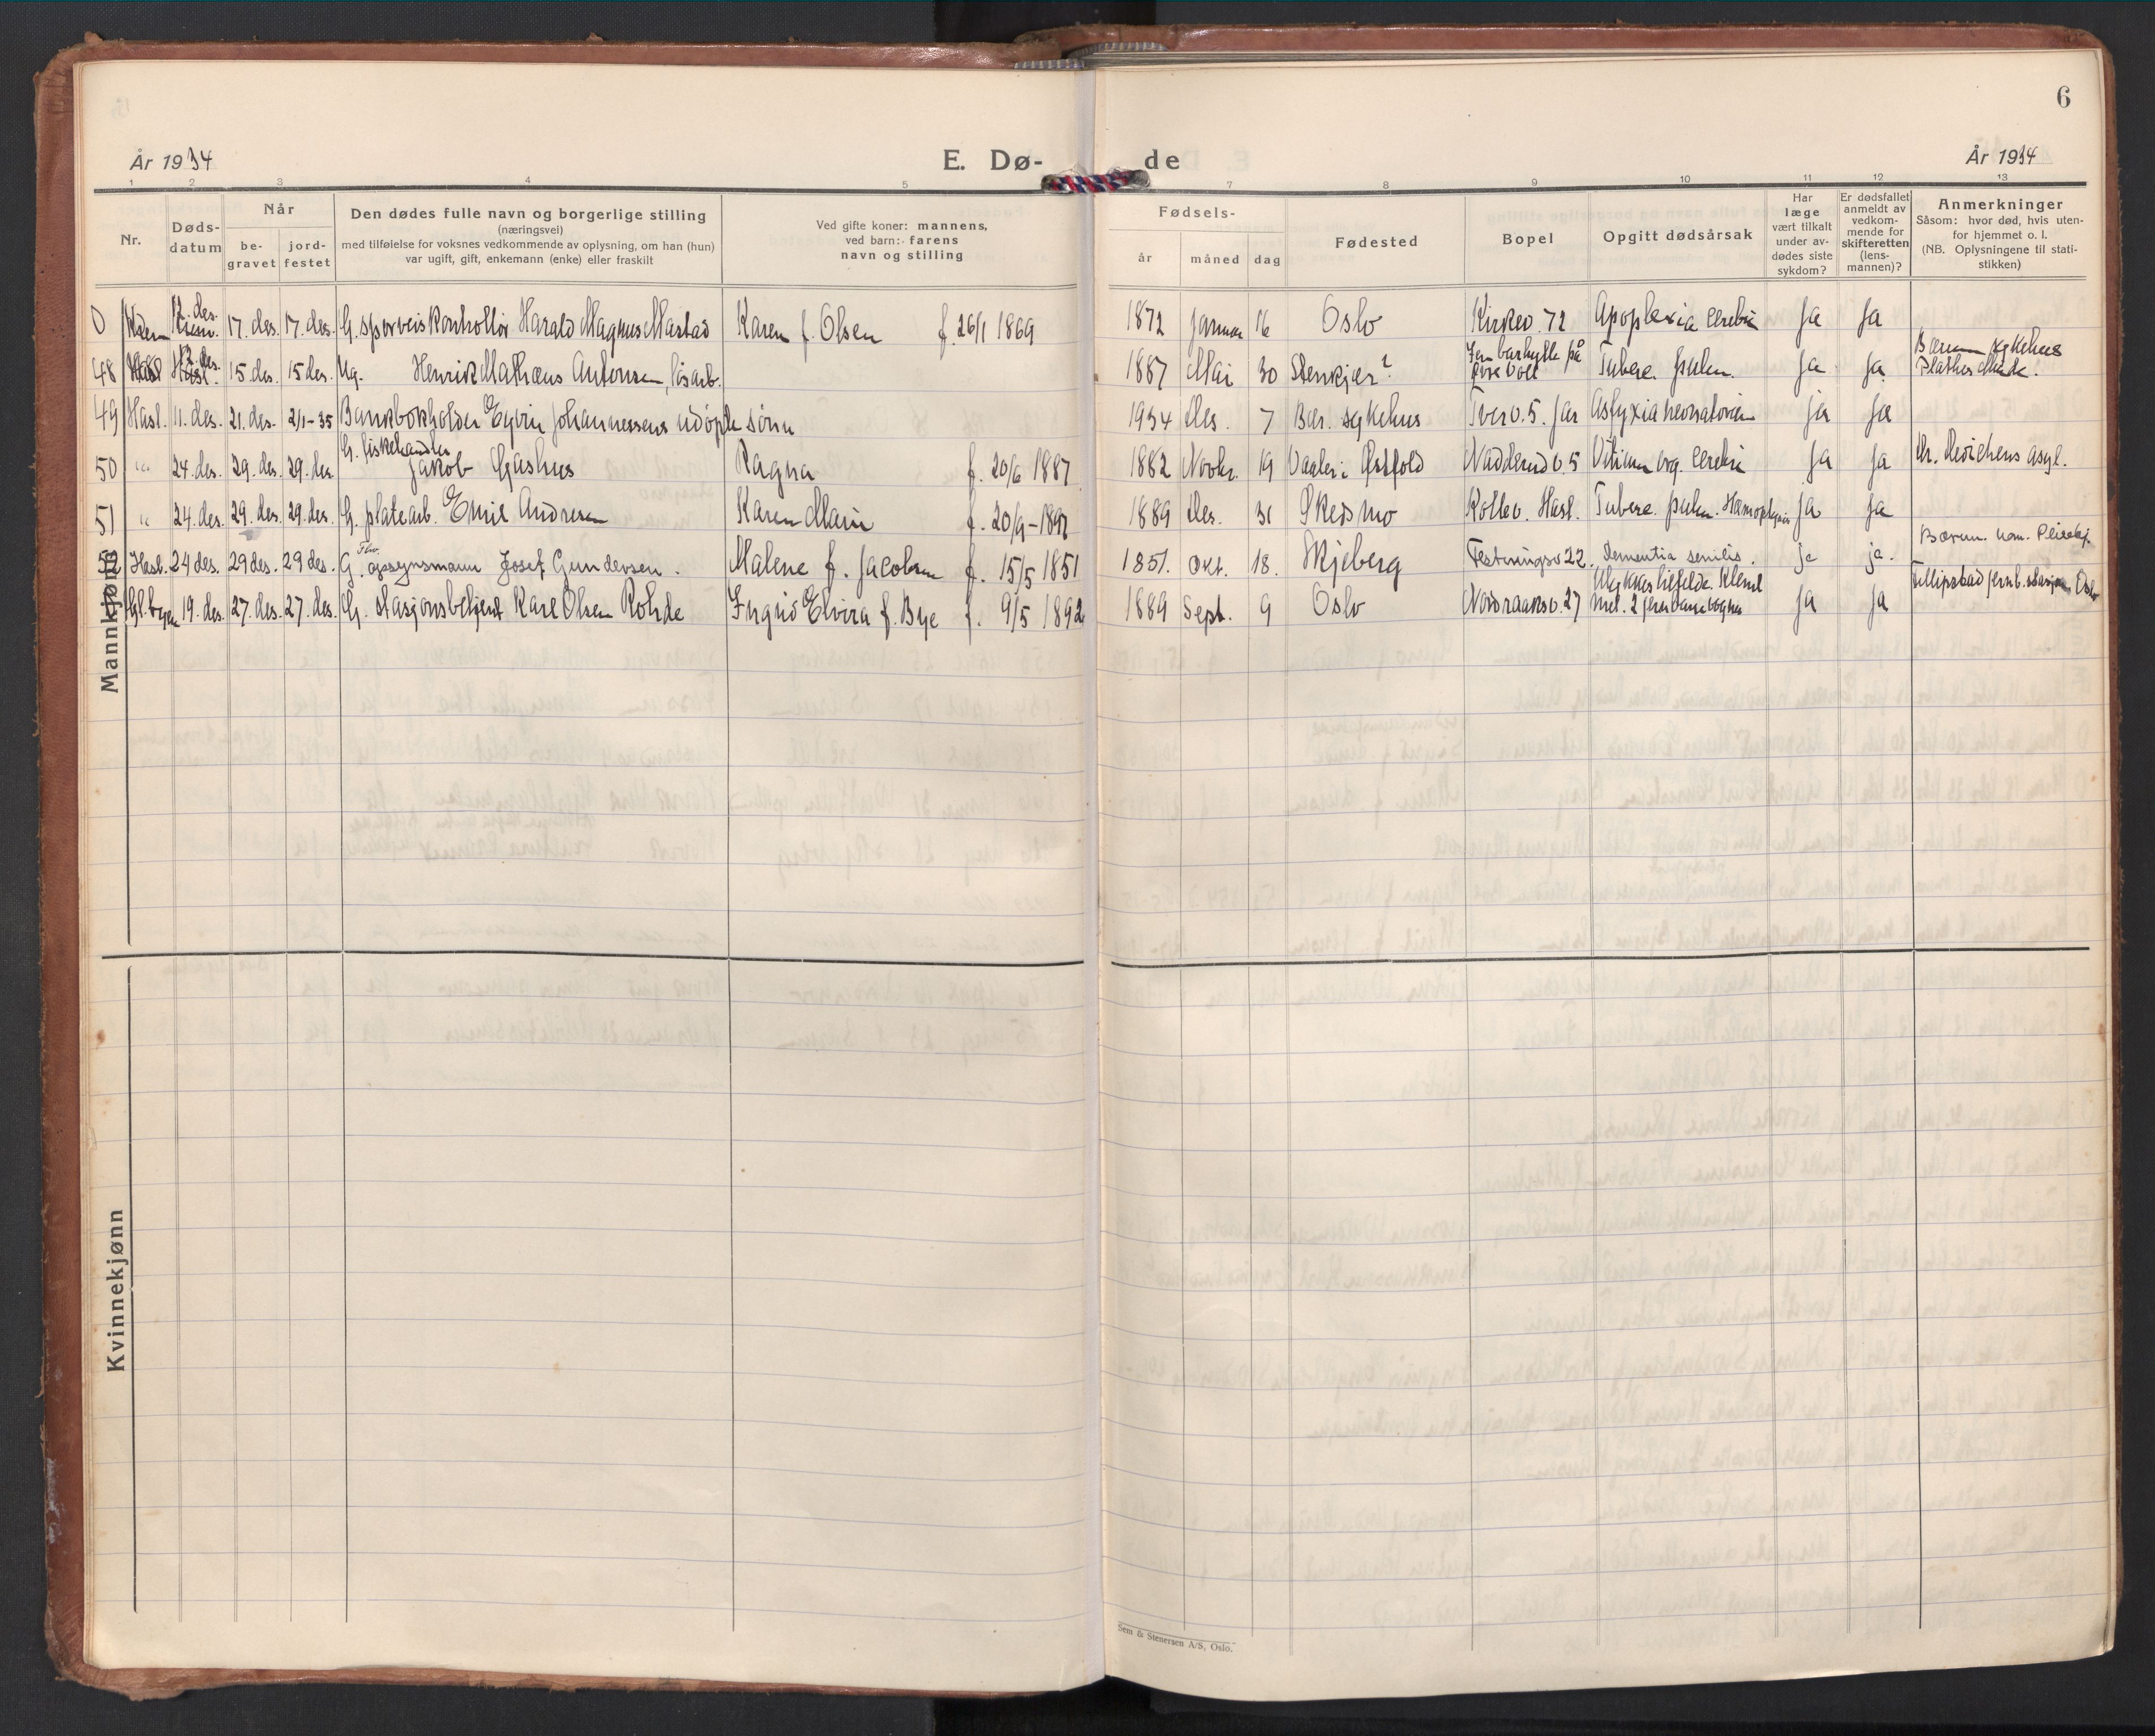 6
År 1934
E. Dø-
de
År 1934
1 2 3 4 5 7 8 9 10 11 12 13
Nr.
Døds-
datum
Når
be-
gravet
jord-
festet
Den dødes fulle navn og borgerlige stilling
(næringsvei)
med tilføielse for voksnes vedkommende av oplysning, om han (hun)
var ugift, gift, enkemann (enke) eller fraskilt
Ved gifte koner: mannens,
ved barn: farens
navn og stilling
Fødsels-
år
måned
dag
Fødested
Bopel
Opgitt dødsårsak
Har
læge
vært tilkalt
under av-
dødes siste
sykdom?
Er dødsfallet
anmeldt av
vedkom-
mende for
skifteretten
(lens-
mannen)?
Anmerkninger
Såsom: hvor død, hvis uten-
for hjemmet o. l.
(NB. Oplysningene til stati-
stikken)
Mannkjønn
0 12. des. 17. des. 17. des. G. sporveiskontrollør Harald Magnus Mastad Karen f. Olsen f. 26/1 1869 1872 Januar 16 Oslo Kirkev. 72 Apoplexia cerebri ja ja
48 Hasl 12. des. 15. des. 15. des. Ug. Henrik Mathæus Antonsen, løsarb. 1887 Mai 30 Stenkjær? på Tuberc. pulm. ja ja Bærum sykehus
49 Hasl. 11. des. 21. des. 2/1-35 Bankbokholder Eyvin Johannessens udøpte sønn 1934 Des. 7 Bær. sykehus Tverv. 5. Jar Asfyxia neonatorum ja ja
50 " 24. des. 29. des. 29. des. G. fiskehandler Jakob Gashus Ragna f. 20/6 1887 1882 Novbr. 19 Vaaler i Østfold Nadderudv. 5 Vitium org. cerebri ja ja asyl.
51 " 24. des. 29. des. 29. des. G. platearb. Emil Andresen Karen Marie f. 20/9-1897 1889 Des. 31 Skedsmo Kollev. Hasl. Tuberc. pulm. Hæmoptysis ja ja
52 Hasl. 24 des. 29 des. 29 des. G. opsynsmann Josef Gundersen. Malene f. Jacobsen f. 15/5 1851 1851. Okt. 18. Skjeberg Festningsv 22. Dementia senilis. ja ja. Bærum. kom. Pleiehj.
19. des. 27. des. 27. des. G. stasjonsbetjent Karl Olsen Rohde Ingrid Elvira f. Bye f. 9/5 1892 1889 Sept. 9 Oslo Nordraaksv. 27 Ulykkestilfelde. Klemt mel. 2 jernbanevogner ja ja Fillipstad jernb. stasjon Oslo
Kvinnekjønn
Sem & Stenersen A/S, Oslo.